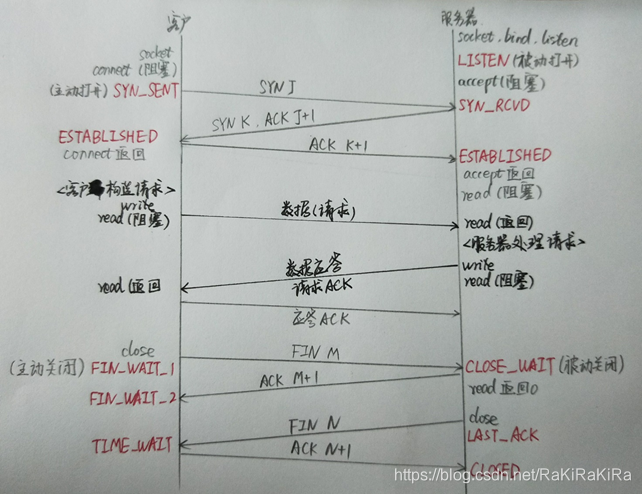 客户
服务器
socket
socket.bind.listen
connect (阻塞)
LISTEN (被动打开)
(主动打开) SYN_SENT
SYN J
accept (阻塞)
SYN_RCVD
SYN K, ACK J+1
ESTABLISHED
ACK K+1
connect 返回
ESTABLISHED
accept 返回
read (阻塞)
<客户构造请求>
write
read (阻塞)
数据(请求)
read (返回)
<服务器处理请求>
数据应答
write
read (返回
请求ACK
read (阻塞)
应答 ACK
close
FIN M
(主动关闭) FIN_WAIT_1
CLOSE_WAIT (被动关闭)
ACK M+1
read 返回0
FIN_WAIT_2
FIN N
close
LAST_ACK
TIME_WAIT
ACK N+1
CLOSED
https://blog.csdn.net/RaKiRaKiRa